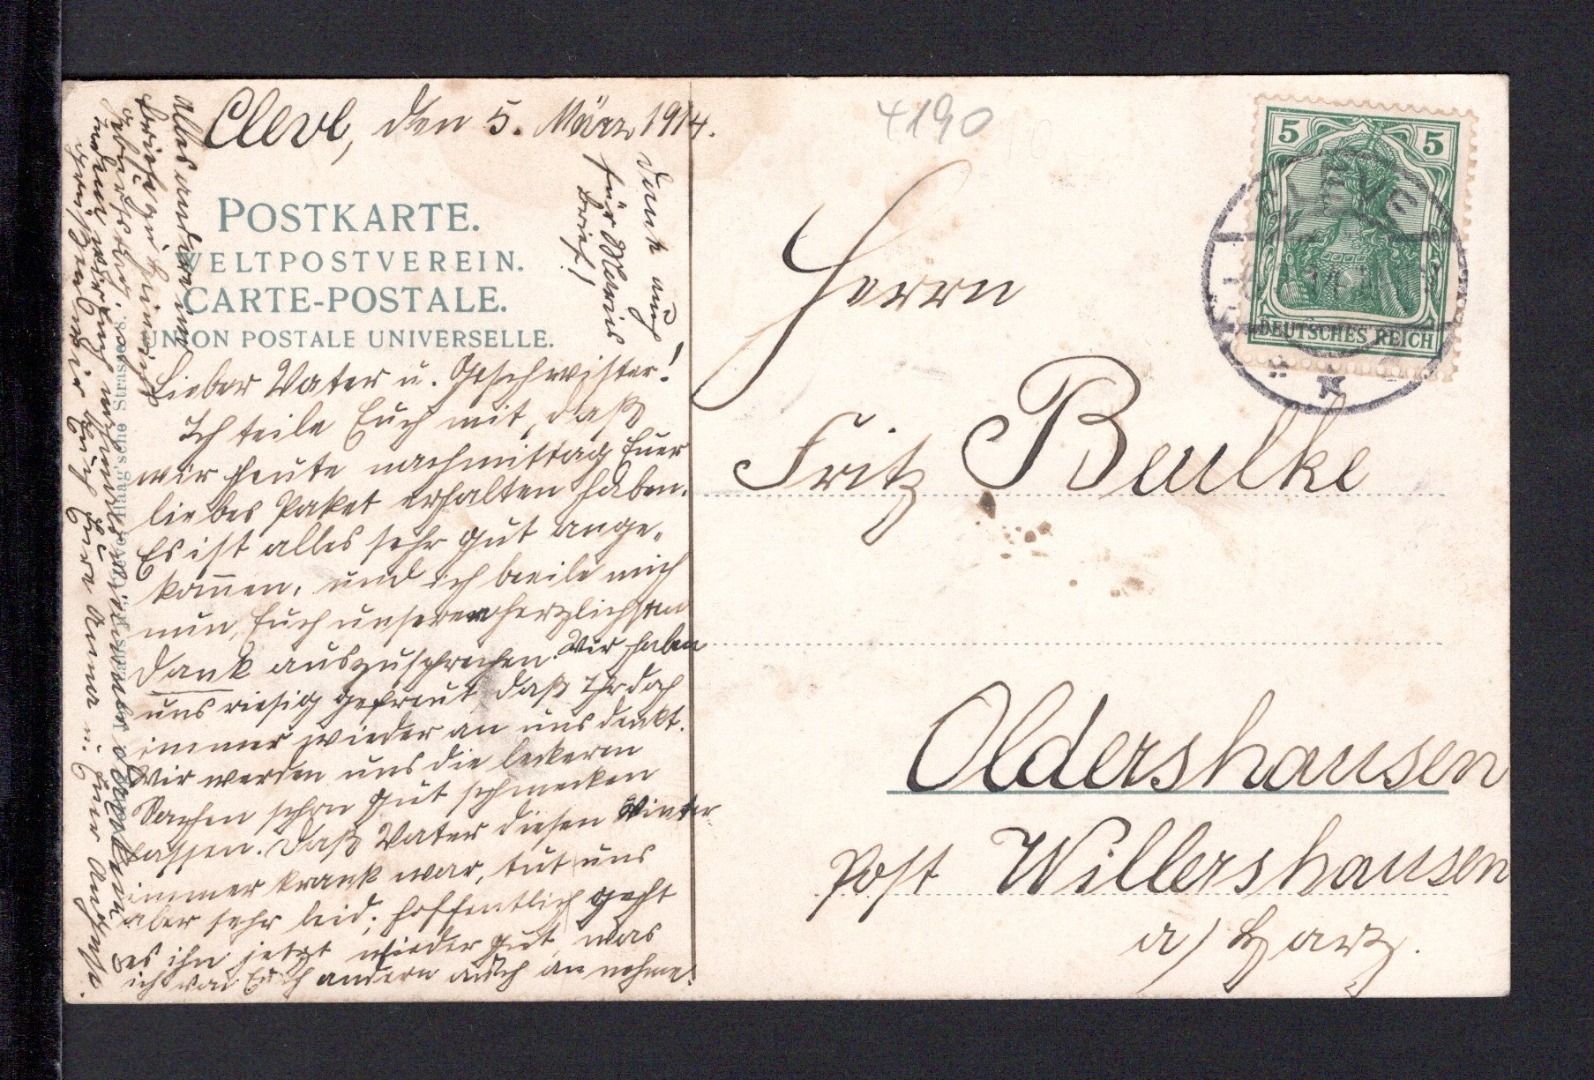 Cleve, den 5. März 1914.
POSTKARTE.
WELTPOSTVEREIN.
CARTE-POSTALE.
UNION POSTALE UNIVERSELLE.
Lieber Vater u. Geschwister!
Ich teile Euch mit, daß
wir heute nachmittag Euer
liebes Paket erhalten haben.
Es ist alles sehr gut ange-
kom̅en, und ich beeile mich
nun, Euch unseren herzlichsten
Dank auszusprechen. Wir haben
uns riesig gefreut daß Ihr doch
immer wieder an uns denkt.
Wir werden uns die leckeren
Sachen schon gut schmecken
lassen. Daß Vater diesen Winter
immer krank war, tut uns
aber sehr leid; hoffentlich geht
es ihm jetzt wieder gut, was
ich von Euch andern auch an nehme.
Alles andere im
Briefe zu
Euch
Eure Anna u. Euer August.
Dank auch
für
Brief!
4190
5 5
DEUTSCHES REICH
Herrn
Fritz Beulke
Oldershausen
Post Willershausen
a/Harz.